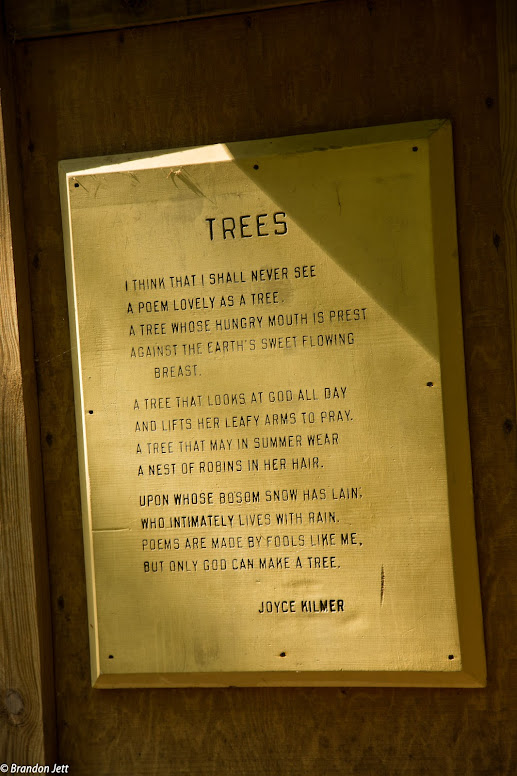 TREES
I THINK THAT I SHALL NEVER SEE
A POEM LOVELY AS A TREE.
A TREE WHOSE HUNGRY MOUTH IS PREST
AGAINST THE EARTH'S SWEET FLOWING
BREAST.
A TREE THAT LOOKS AT GOD ALL DAY
AND LIFTS HER LEAFY ARMS TO PRAY.
A TREE THAT MAY IN SUMMER WEAR
A NEST OF ROBINS IN HER HAIR.
UPON WHOSE BOSOM SNOW HAS LAIN;
WHO INTIMATELY LIVES WITH RAIN.
POEMS ARE MADE BY FOOLS LIKE ME,
BUT ONLY GOD CAN MAKE A TREE.
JOYCE KILMER
© Brandon Jett